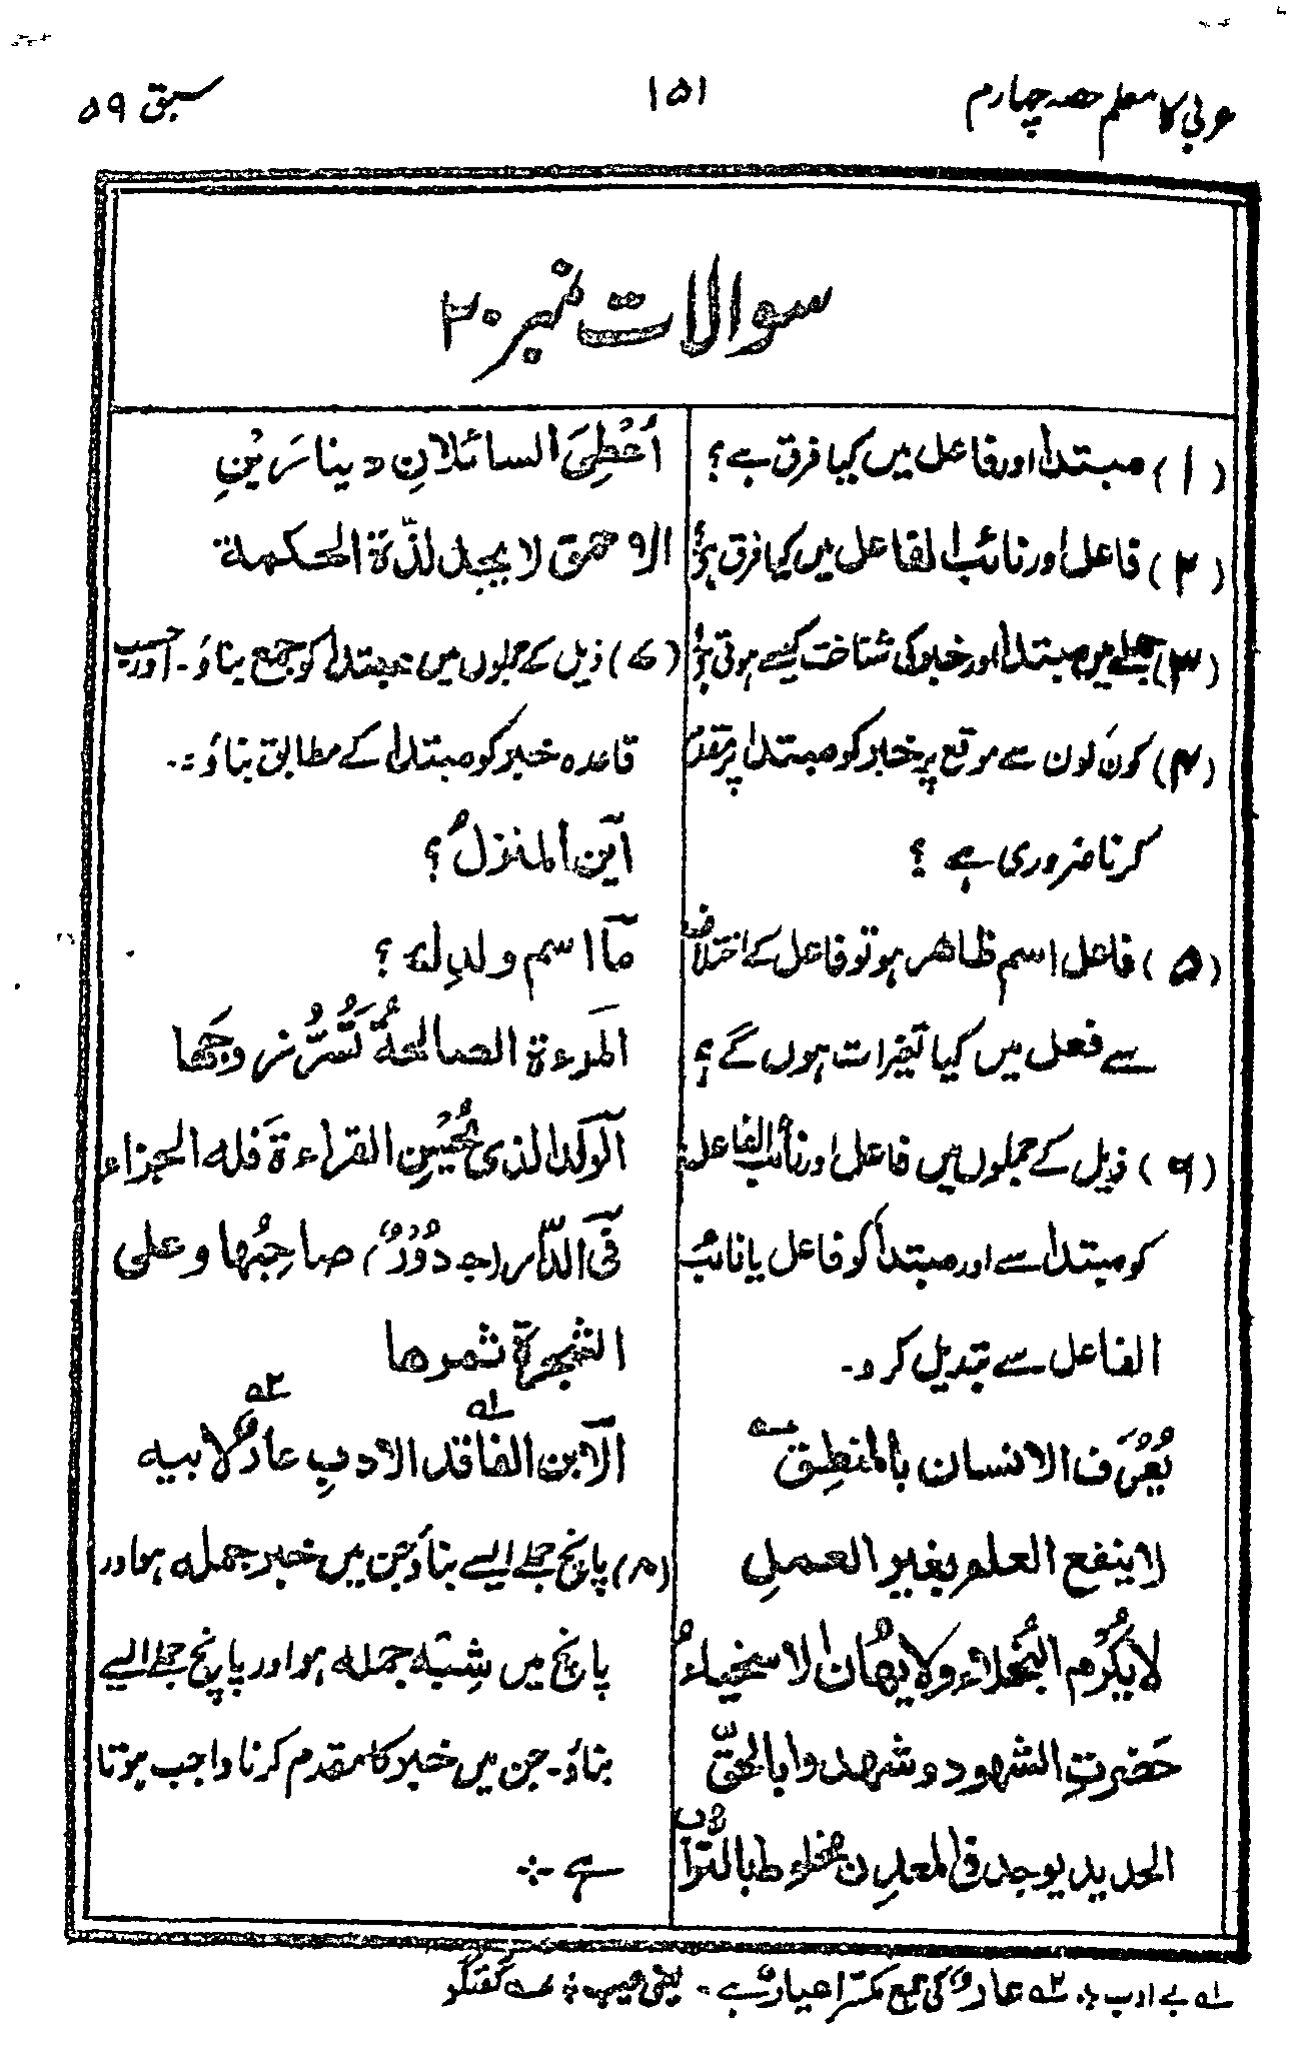 عربی کا معلم حصہ چہارم
۱۵۱
سبق ۵۹
سوالات نمبر ۲۰
(۱) مبتدأ اور فاعل میں کیا فرق ہے؟
(۲) فاعل اور نائب الفاعل میں کیا فرق ہے؟
(۳) جملے میں مبتدأ اور خبر کی شناخت کیسے ہوتی ہے؟
(۴) کون کون سے موقع پر خبر کو مبتدأ پر مقدم
کرنا ضروری ہے ؟
(۵) فاعل اسم ظاهر ہو تو فاعل کے اختلاف
سے فعل میں کیا تغیرات ہوں گے؟
(۶) ذیل کے جملوں میں فاعل اور نائب الفاعل
کو مبتدأ سے اور مبتدأ کو فاعل یا نائب
الفاعل سے تبدیل کرو۔
يُعْرَف الانسان بالمنطِق
لا ينفع العلم بغير العملِ
لا يُكْرَم البُخلاء ولا يهان الاسخياءُ
حَضرتِ الشهود وشهدوا بالحقّ
الحديد يوجد فى المعدِن مخلوطا بالتراب
أُعْطِىَ السائلانِ دينارَيْنِ
الاحمق لا يجد لذّة الحكمة
(۷) ذیل کے جملوں میں مبتدأ کو جمع بناؤ۔ اور حسب
قاعدہ خبر کو مبتدأ کے مطابق بناؤ:۔
اَين المنزلُ؟
مَا اسم ولدِله ؟
المَرءة الصالحةُ تَسُرُّ زوجَها
اَلوَلد الذى يُحْسِن القراءة فَله الجزاء
فَى الدّار (ج دُوْرٌ) صاحِبُها وعلى
الشجرة ثمرها
اَلابن الفاقد الادبِ عارٌ لابيه
(۸) پانچ جملے ایسے بناؤ جن میں خبر جملہ ہو اور
پانچ میں شِبہ جملہ ہو اور پانچ جملے ایسے
بناؤ۔ جن میں خبر کا مقدم کرنا واجب ہوتا
ہے ÷
۱ بے ادب ۲ عارٌ کی جمع مکسّر اعیار ہے۔ یعنی عیب گفتگو